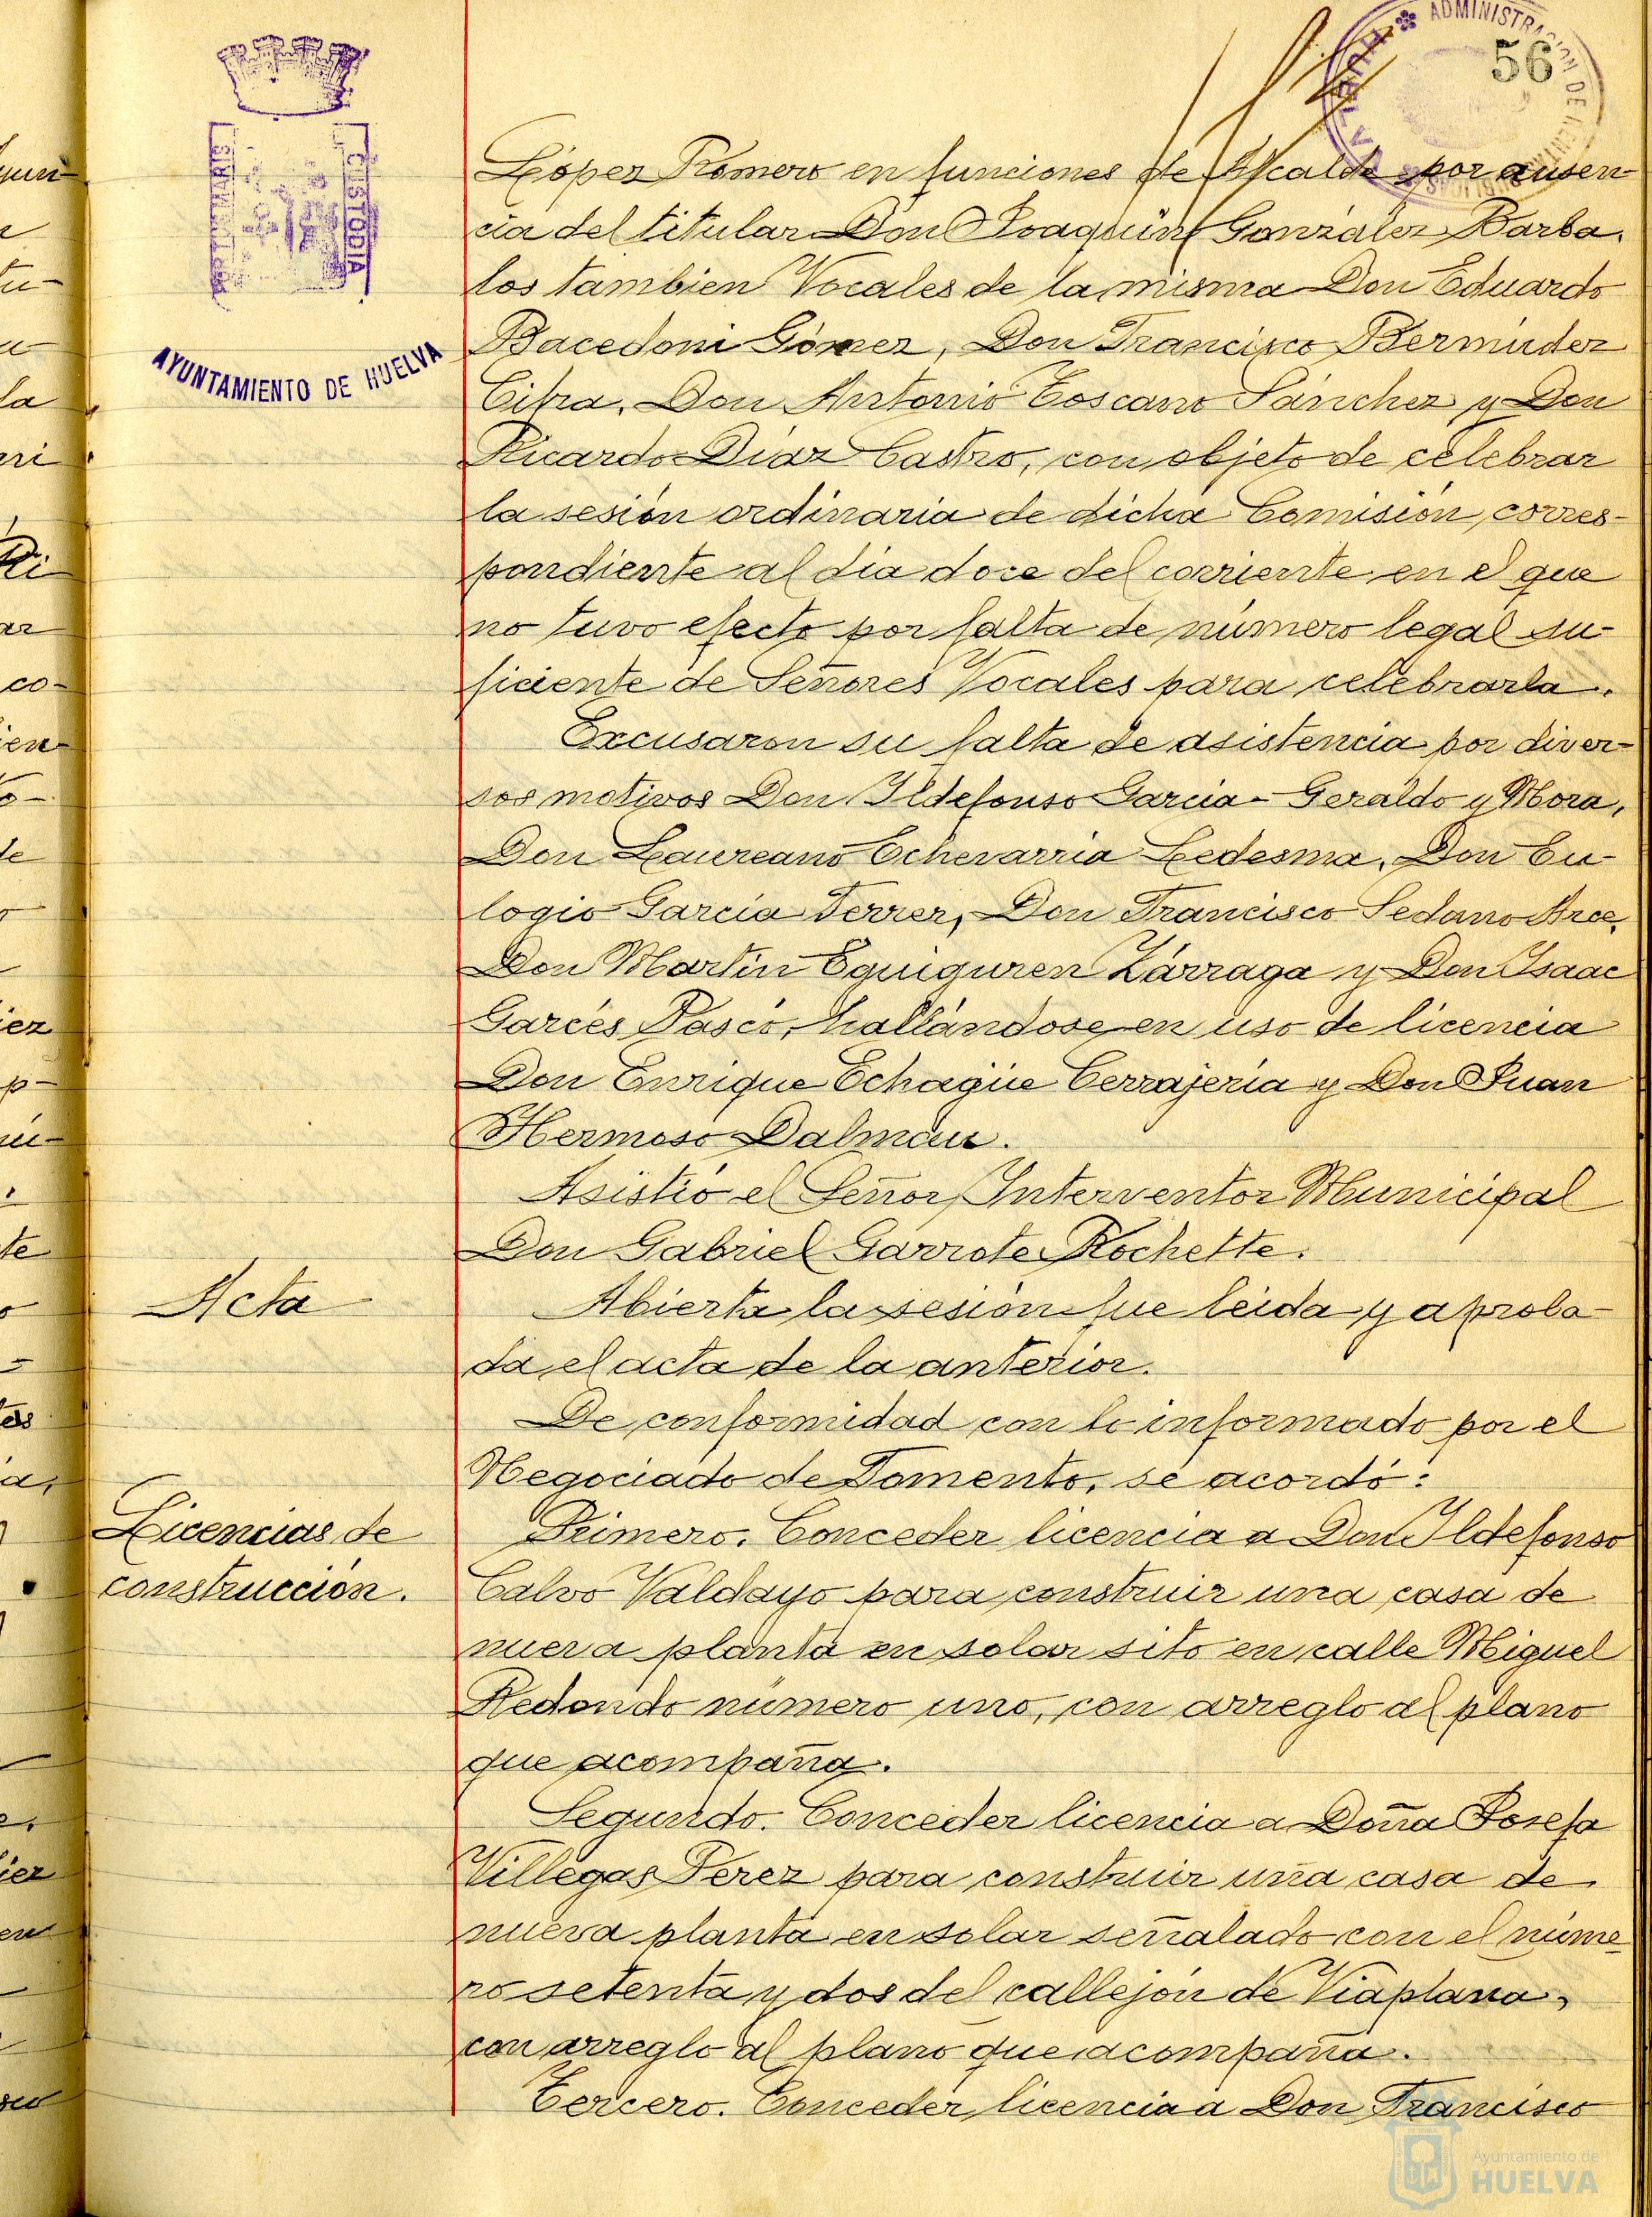 ADMINISTRACION DE RENTAS
56
PORTUS MARIS
CUSTODIA
AYUNTAMIENTO DE HUELVA
López Romero en funciones de Alcalde por ausen-
cia del titular Don Joaquín González Barba.
los tambien Vocales de la misma Don Eduardo
Bacedoni Gómez, Don Francisco Bermúdez
Cifra, Don Antonio Toscano Sánchez y Don
Ricardo Díaz Castro, con objeto de celebrar
la sesión ordinaria de dicha Comisión, corres-
pondiente al dia doce del corriente en el que
no tuvo efecto por falta de número legal su-
ficiente de Señores Vocales para celebrarla.
Excusaron su falta de asistencia por diver-
sos motivos Don Ildefonso Garcia-Geraldo y Mora,
Don Laureano Echevarria Ledesma, Don Eu-
logio García Ferrer, Don Francisco Sedano Arce,
Don Martín Eguiguren Zárraga y Don Isaac
Garcés Pascó, hallándose en uso de licencia
Don Enrique Echagüe Cerrajería y Don Juan
Hermoso Dalmau.
Asistió el Señor Interventor Municipal
Don Gabriel Garrote Rochette.
Acta
Abierta la sesión fue leida y aproba-
da el acta de la anterior.
De conformidad con lo informado por el
Negociado de Fomento, se acordó:
Licencias de
construcción.
Primero. Conceder licencia a Don Ildefonso
Calvo Valdayo para construir una casa de
nueva planta en solar sito en calle Miguel
Redondo número uno, con arreglo al plano
que acompaña.
Segundo. Conceder licencia a Doña Josefa
Villegas Perez para construir una casa de
nueva planta en solar señalado con el núme
ro setenta y dos del callejón de Viaplana,
con arreglo al plano que acompaña.
Tercero. Conceder licencia a Don Francisco
Ayuntamiento de
HUELVA